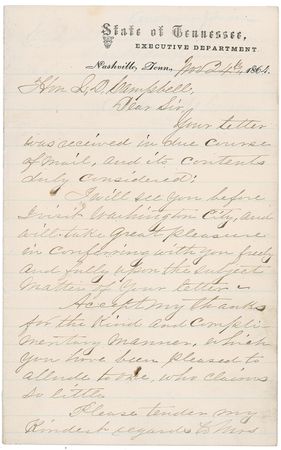 State of Tennessee,
EXECUTIVE DEPARTMENT
Nashville, Tenn., Nov 24th, 1864.
Hon L. D. Campbell,
Dear Sir,
Your letter
was received in due course
of mail, and its contents
duly considered:
I will see you before
I visit Washington City, and
will take great pleasure
in conferring with you freely
and fully upon the subject
matter of your letter –
Accept my thanks
for the kind and compli-
mentary manner, which
you have been pleased to
allude to me, who claims
so little
Please tender my
kindest regards to Mrs